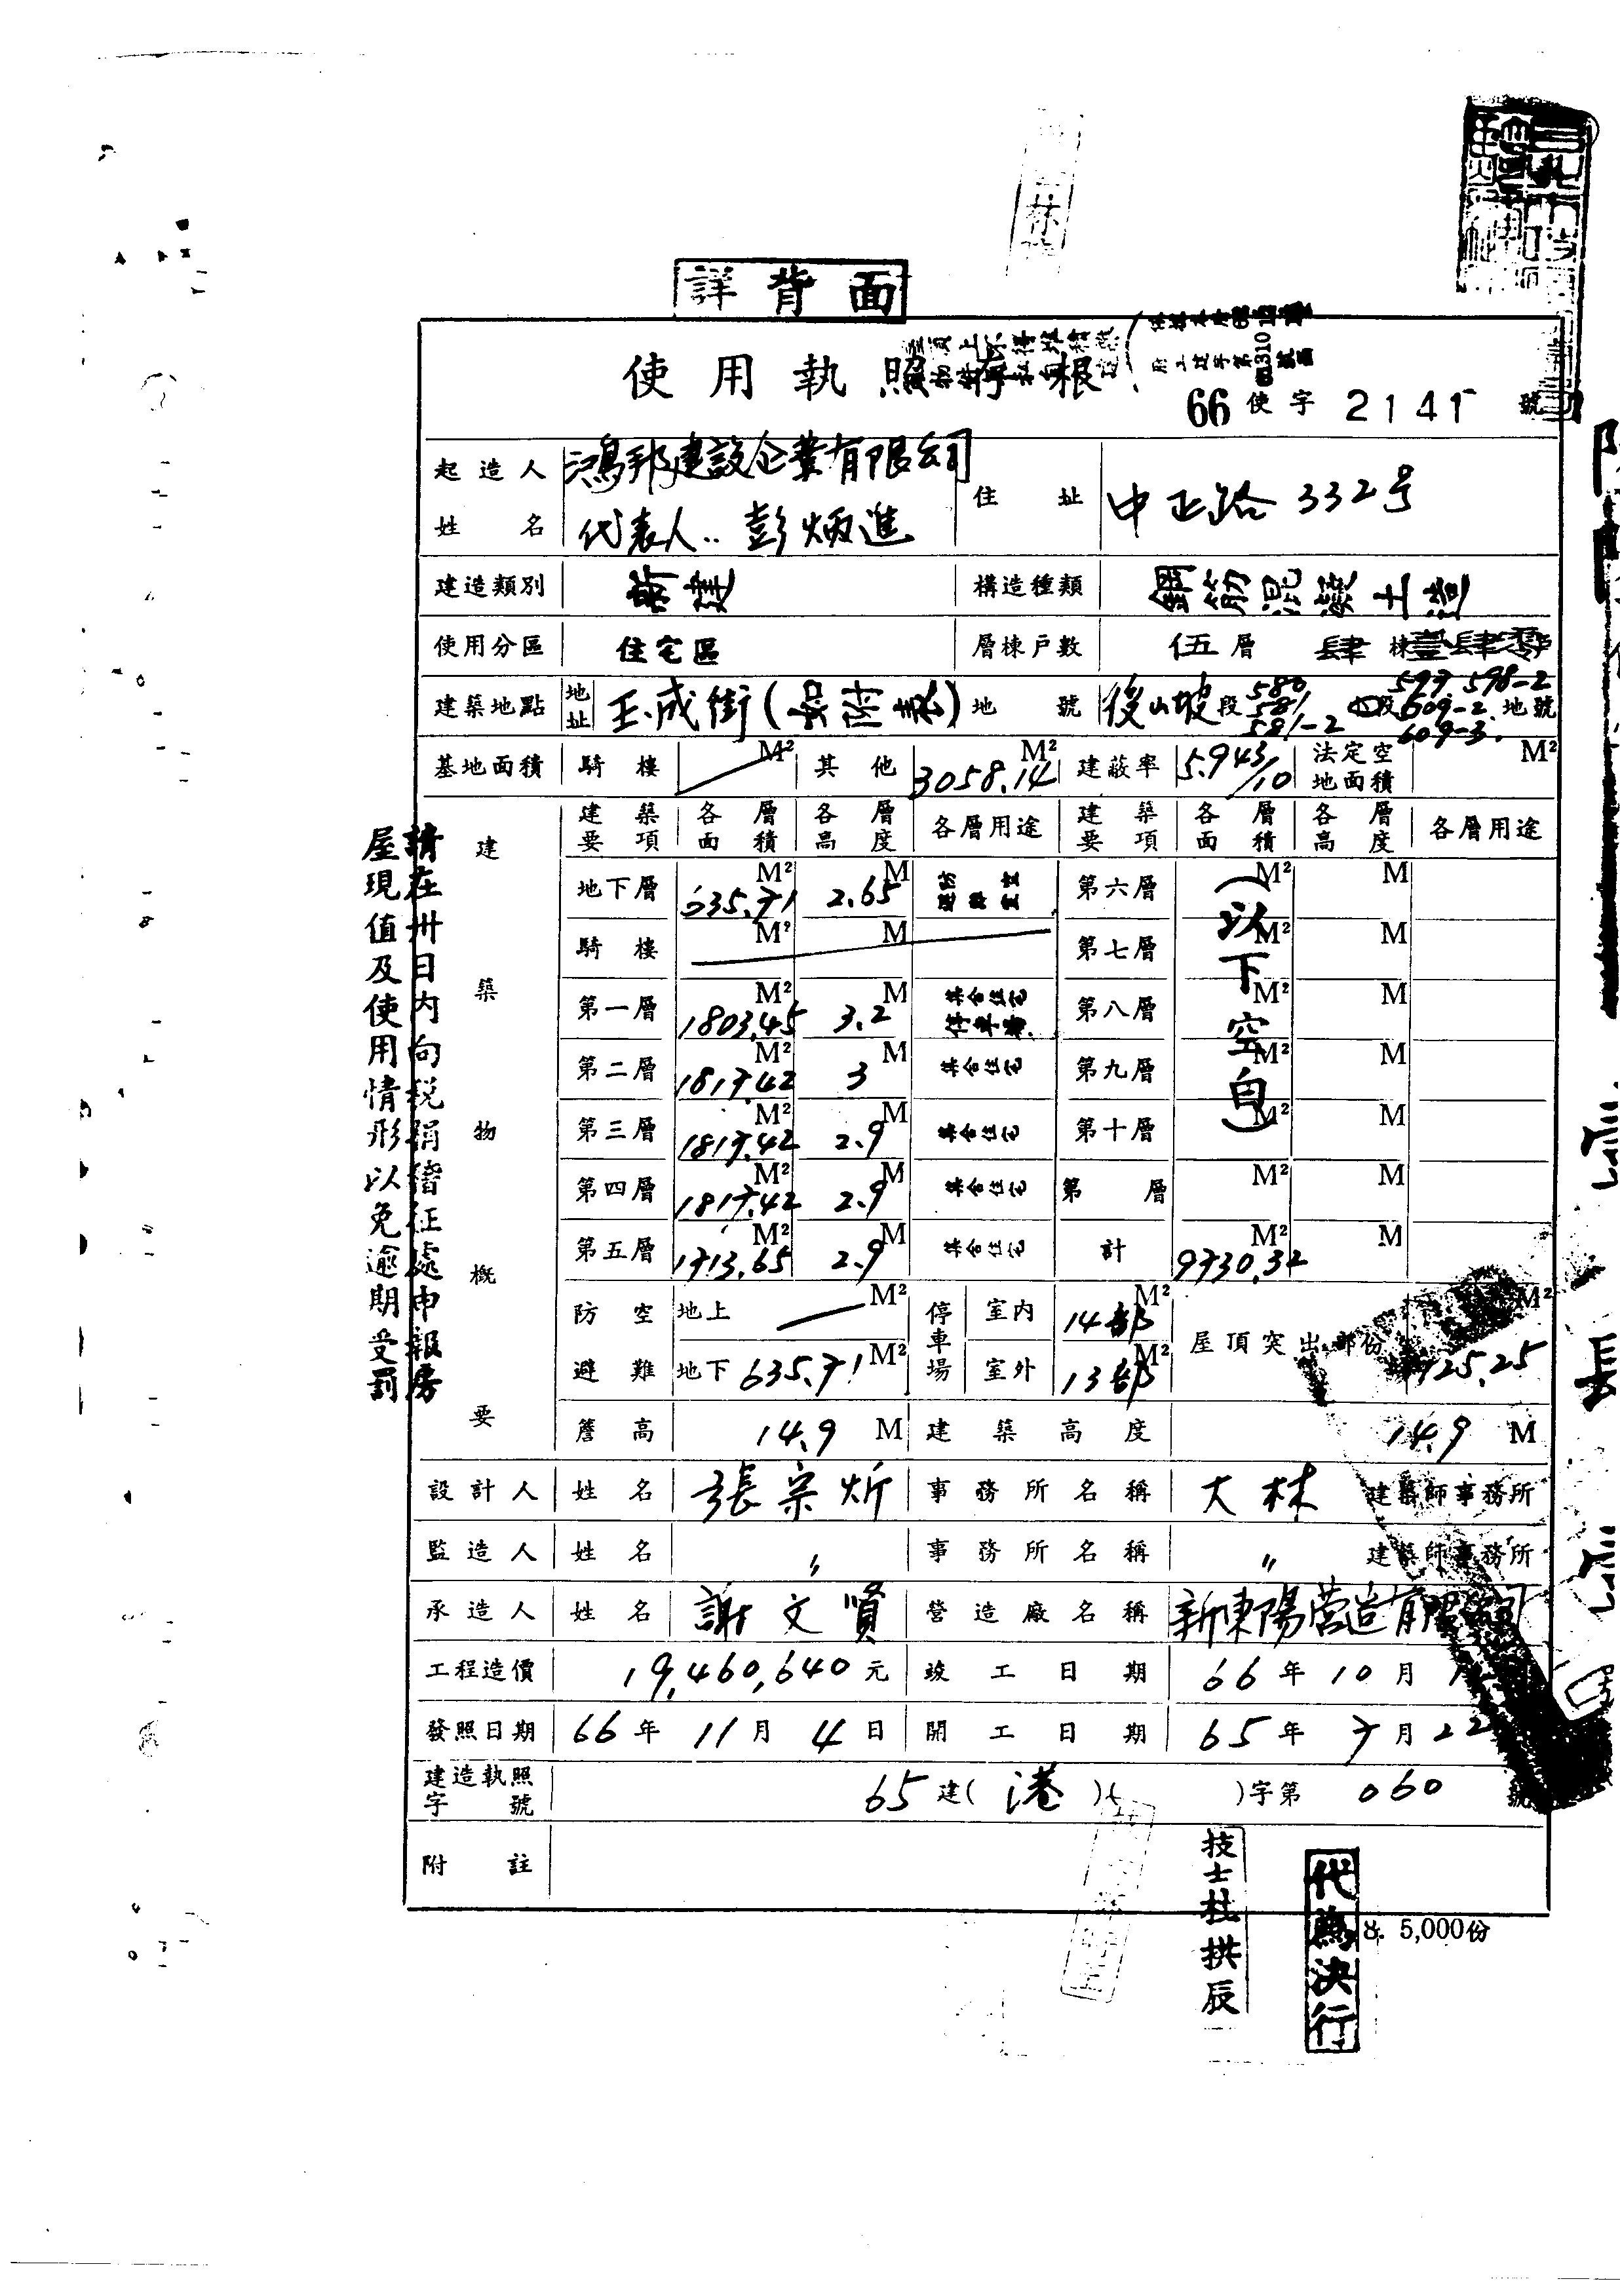 詳背面
使用執照存根
66使字2141號
起造人姓名 鴻邦建設企業有限公司
代表人:彭炳進
住址 中正路332号
建造類別 新建 構造種類 鋼筋混凝土造
使用分區 住宅區 層棟戶數 伍層 肆棟
建築地點 地址 玉成街 地號 後山坡段 580 581 581-2 597 598-2 609-2 609-3 地號
基地面積 騎樓 M² 其他 3058.14 M² 建蔽率 5.943/10 法定空地面積 M²
建築物概要
建築要項 各層面積 各層高度 各層用途 建築要項 各層面積 各層高度 各層用途
地下層 635.71 M² 2.65 M 第六層 M² M
騎樓 M² M 第七層 M² M
第一層 1803.45 M² 3.2 M 集合住宅 停車場 第八層 M² M
第二層 1817.42 M² 3 M 集合住宅 第九層 M² M
第三層 1817.42 M² 2.9 M 集合住宅 第十層 M² M
第四層 1817.42 M² 2.9 M 集合住宅 第 層 M² M
第五層 1713.65 M² 2.9 M 集合住宅 計 9730.32 M² M
(以下空白)
防空避難 地上 M² 停車場 室內 14部 M² 屋頂突出部份 M²
地下 635.71 M² 室外 13部 M² 125.25
簷高 14.9 M 建築高度 14.9 M
設計人 姓名 張宗炘 事務所名稱 大林 建築師事務所
監造人 姓名 〃 事務所名稱 〃 建築師事務所
承造人 姓名 謝文賢 營造廠名稱 新東陽營造有限公司
工程造價 19,460,640元 竣工日期 66年10月
發照日期 66年11月4日 開工日期 65年7月22
建造執照字號 65建(港)( )字第060號
附註
請在卅日內向稅捐稽征處申報房
屋現值及使用情形以免逾期受罰
技士杜拱辰
代為決行
5,000份